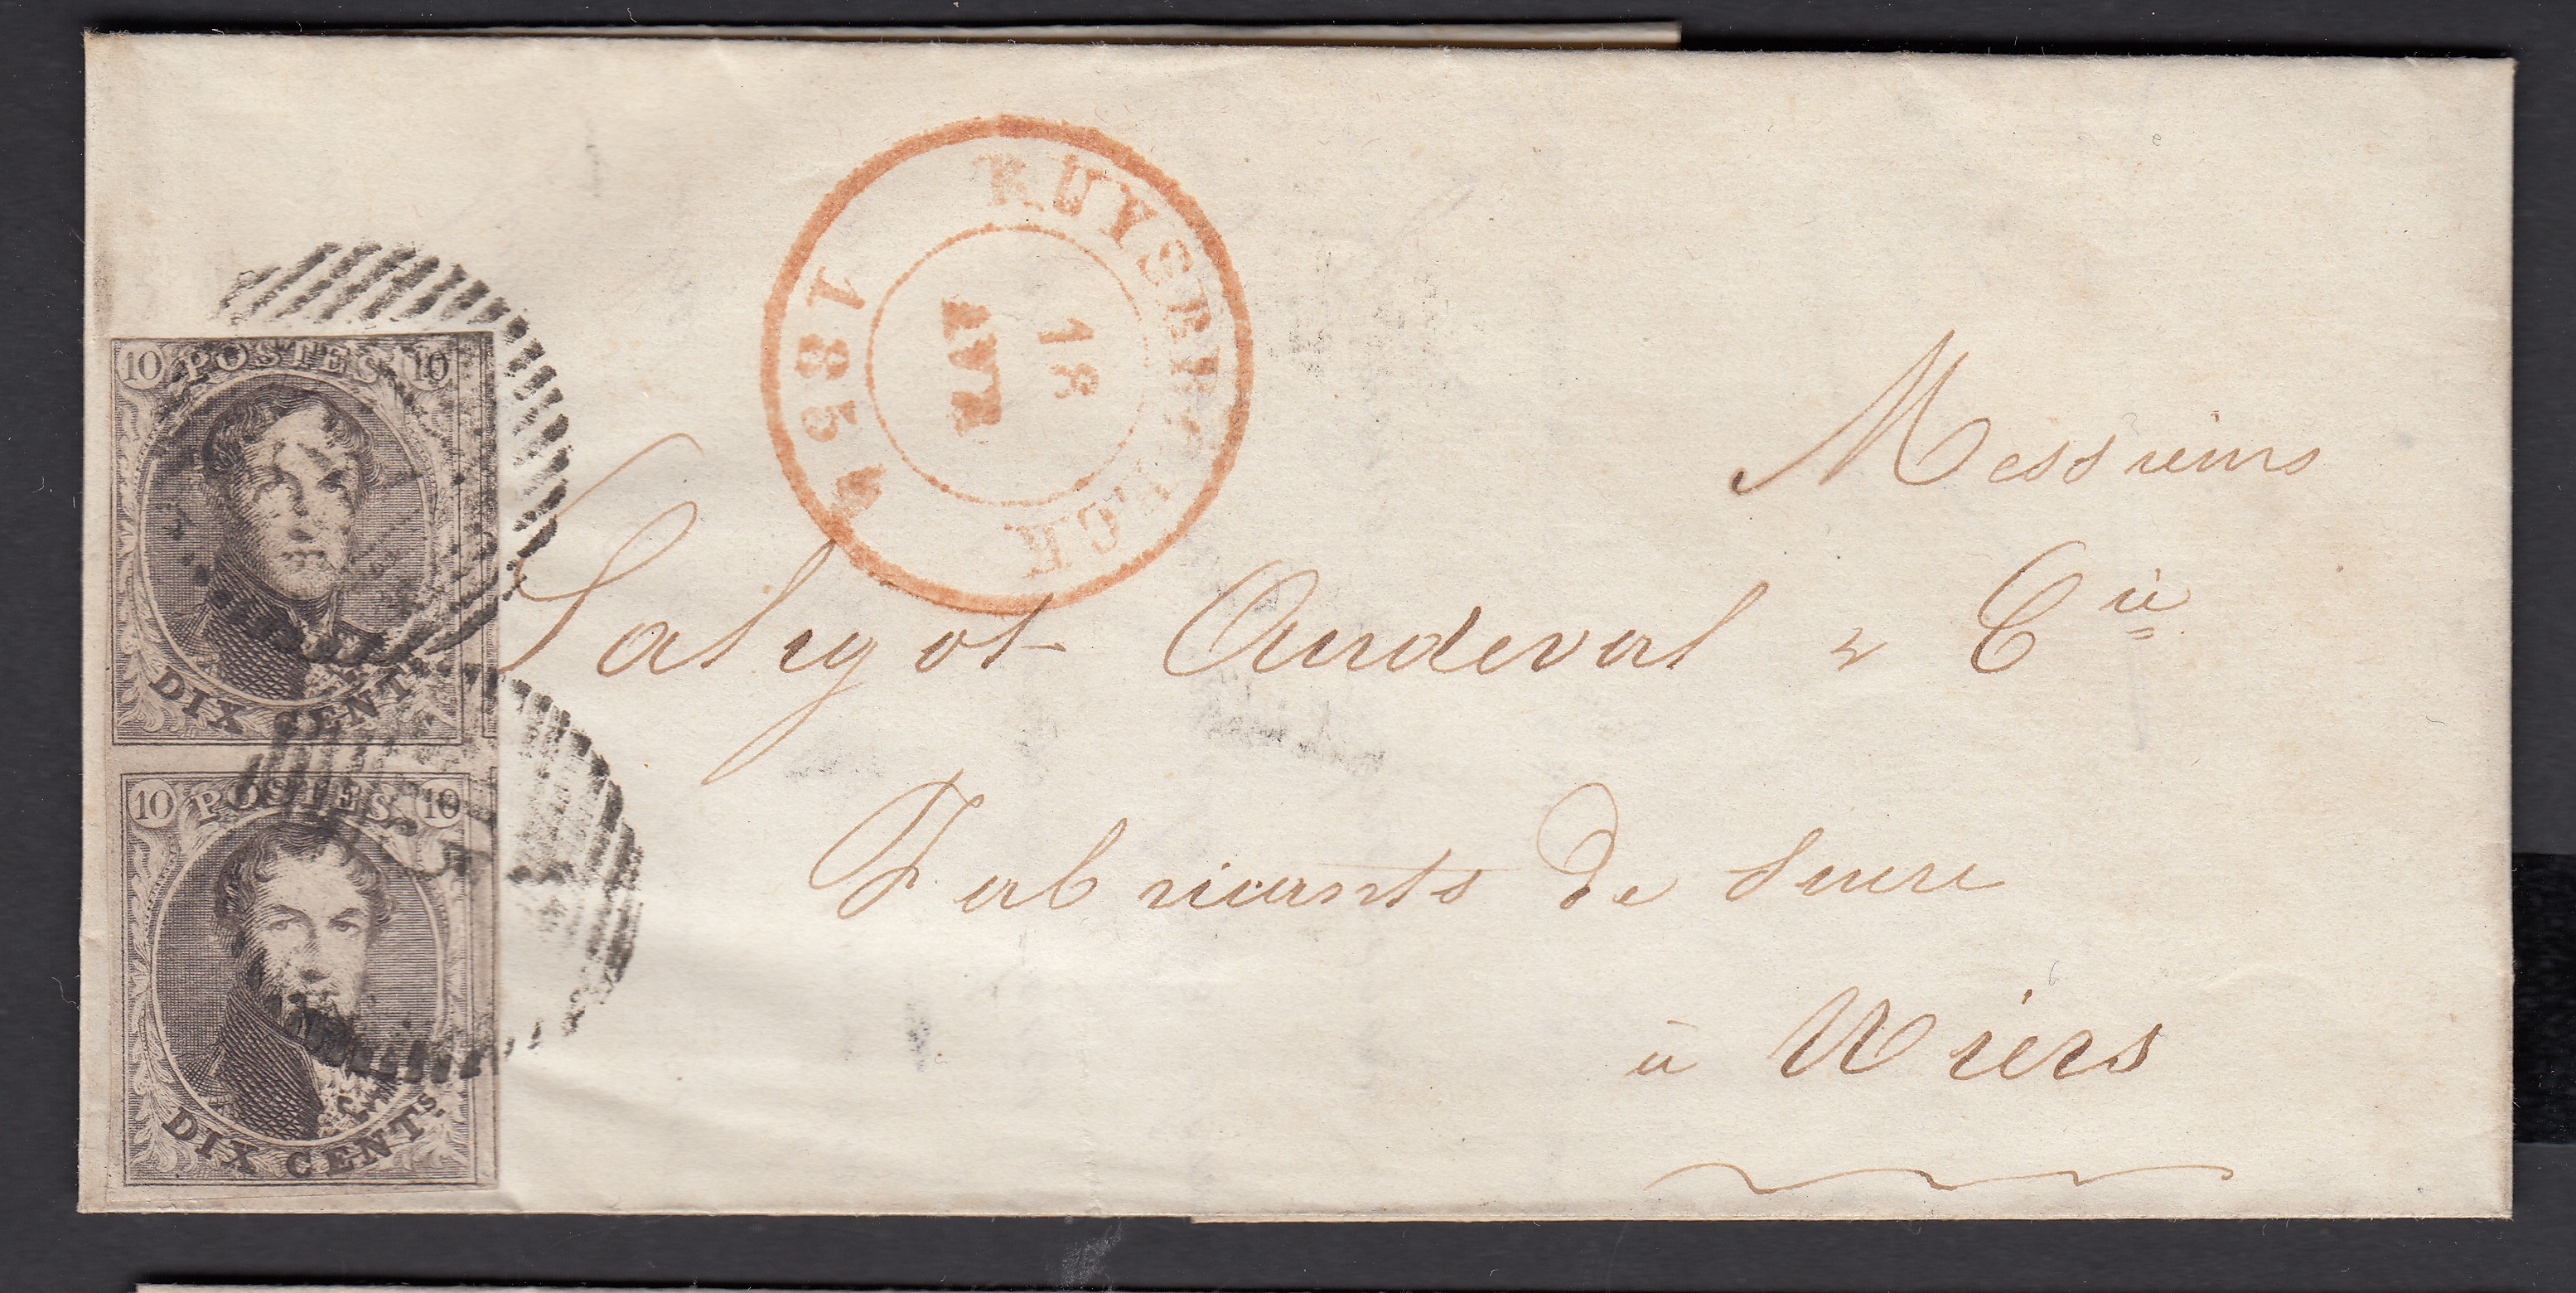 10 POSTES 10
DIX CENTS
10 POSTES 10
DIX CENTS.
18
AVR
185
Messieurs
Saligot Andeval & Cie
Fabricants de Sucre
à Wiers